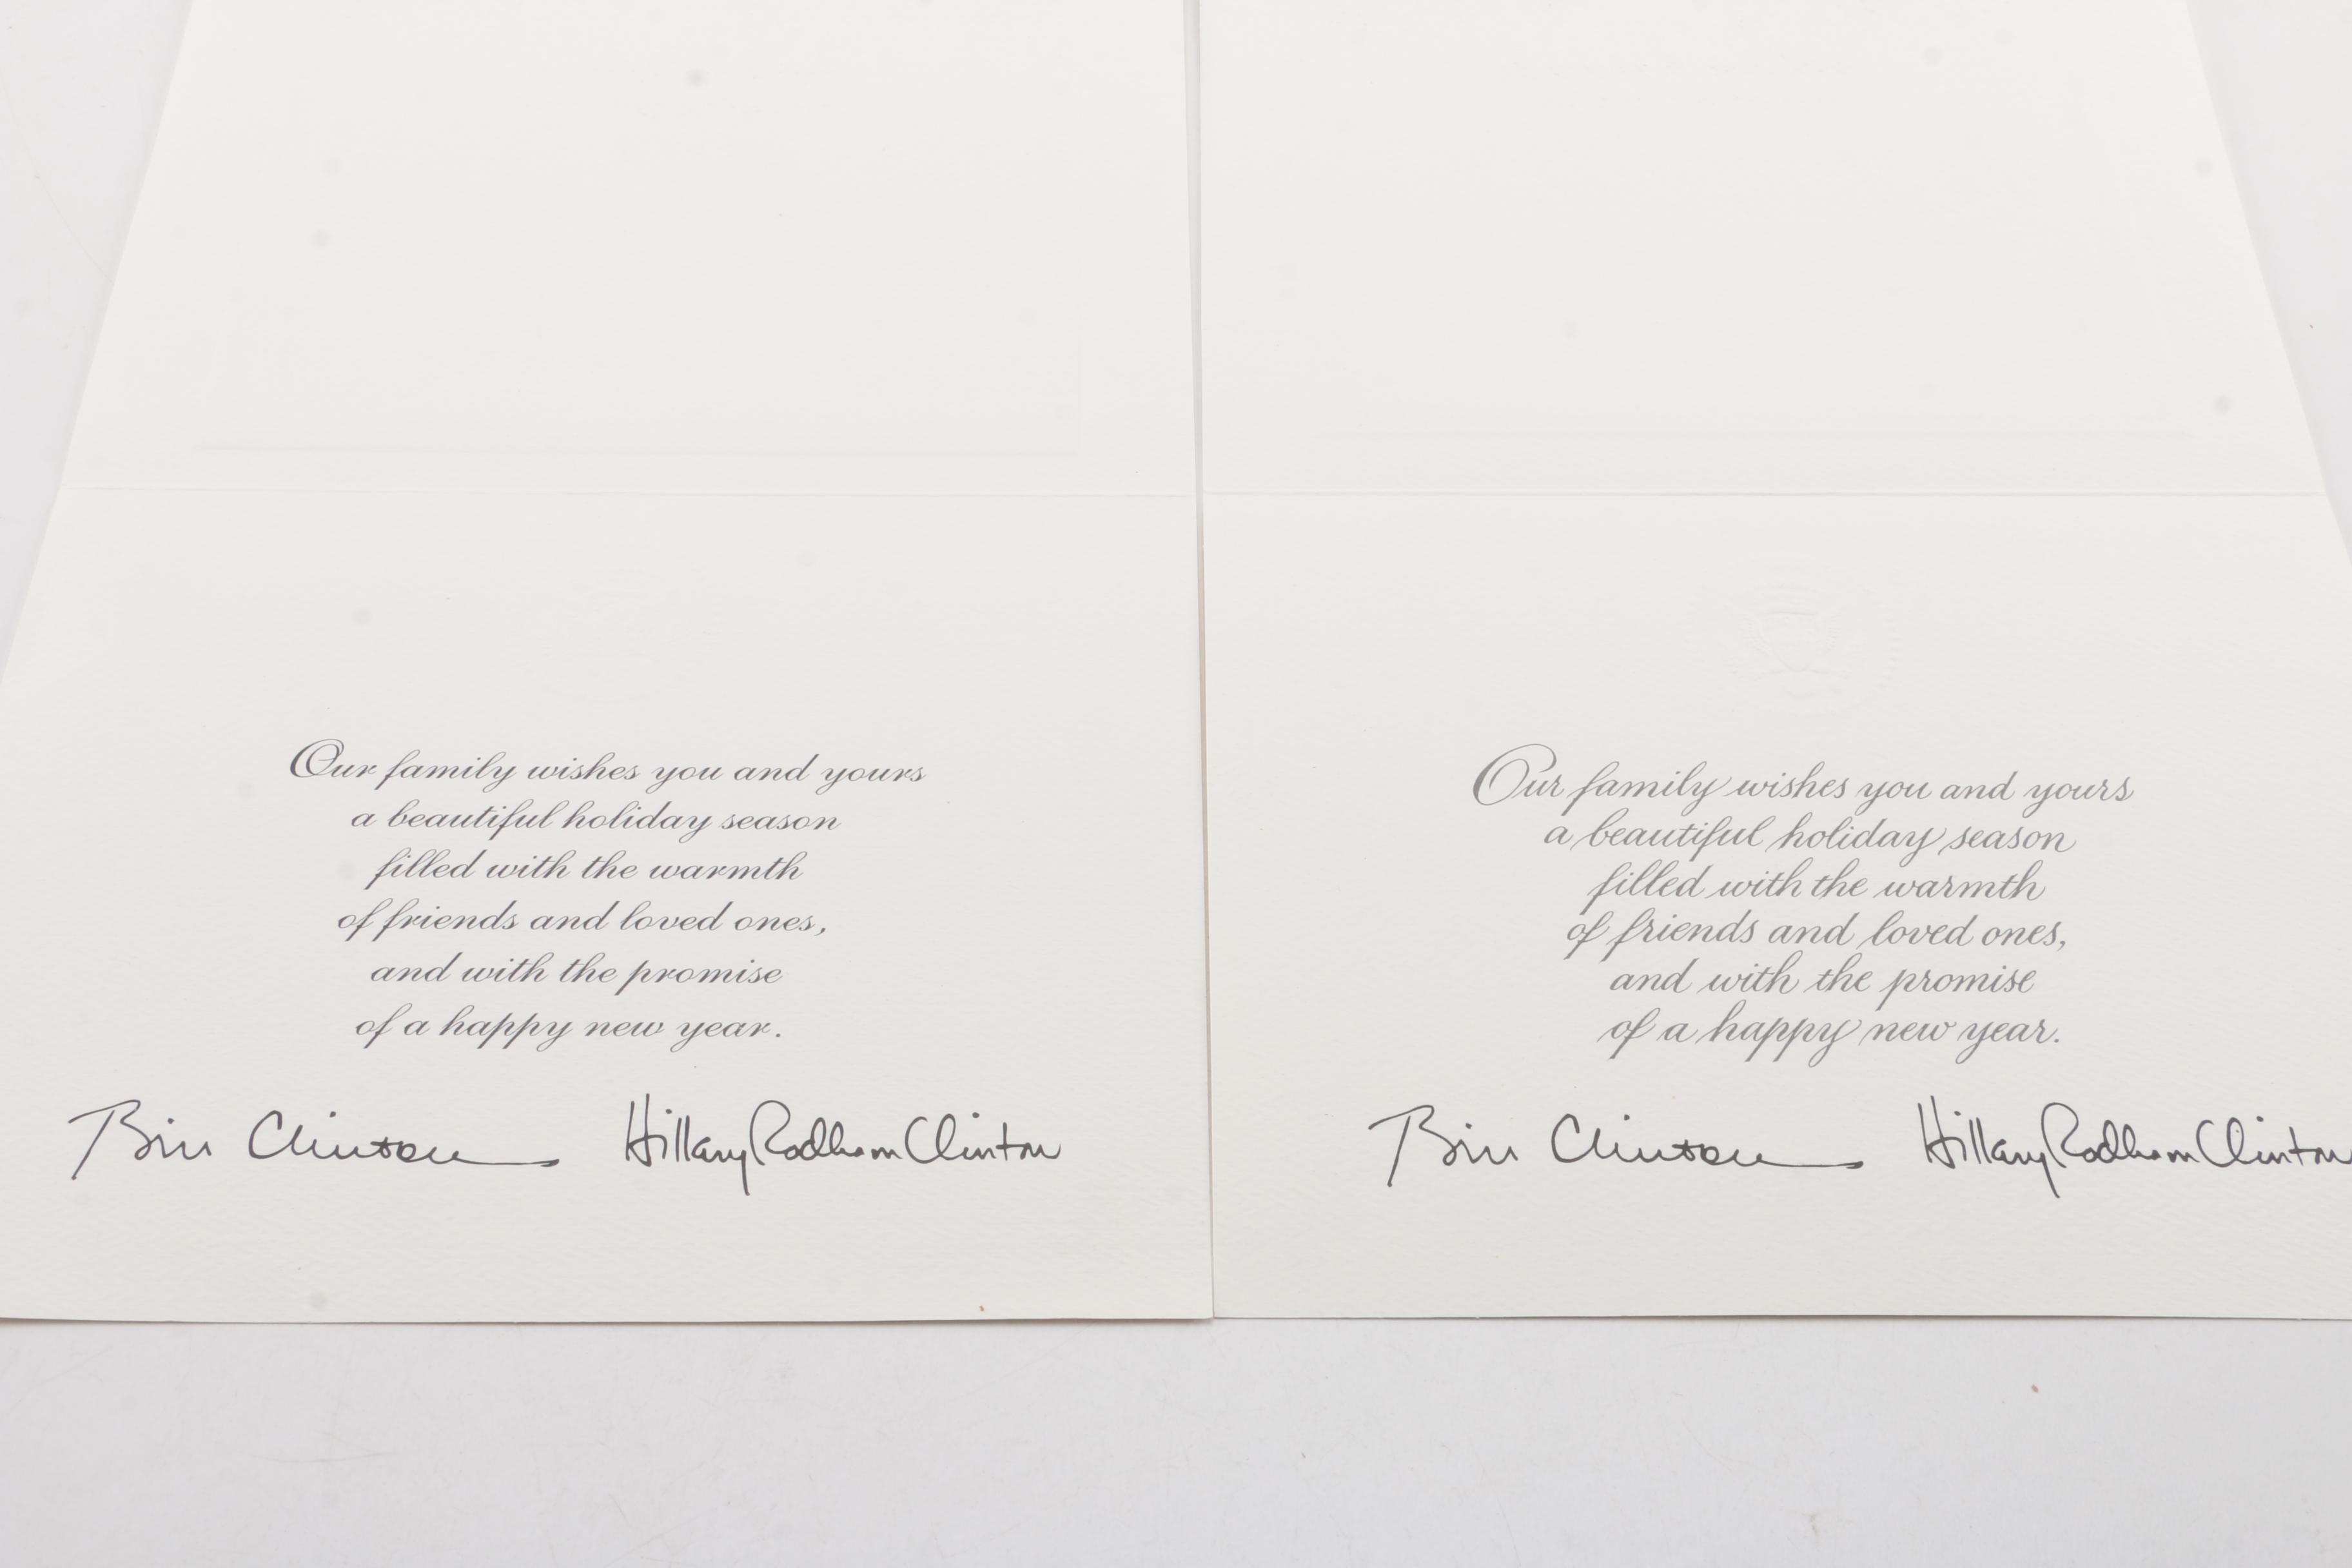 Our family wishes you and yours
a beautiful holiday season
filled with the warmth
of friends and loved ones,
and with the promise
of a happy new year.
Bill Clinton Hillary Rodham Clinton
Our family wishes you and yours
a beautiful holiday season
filled with the warmth
of friends and loved ones,
and with the promise
of a happy new year.
Bill Clinton Hillary Rodham Clinton